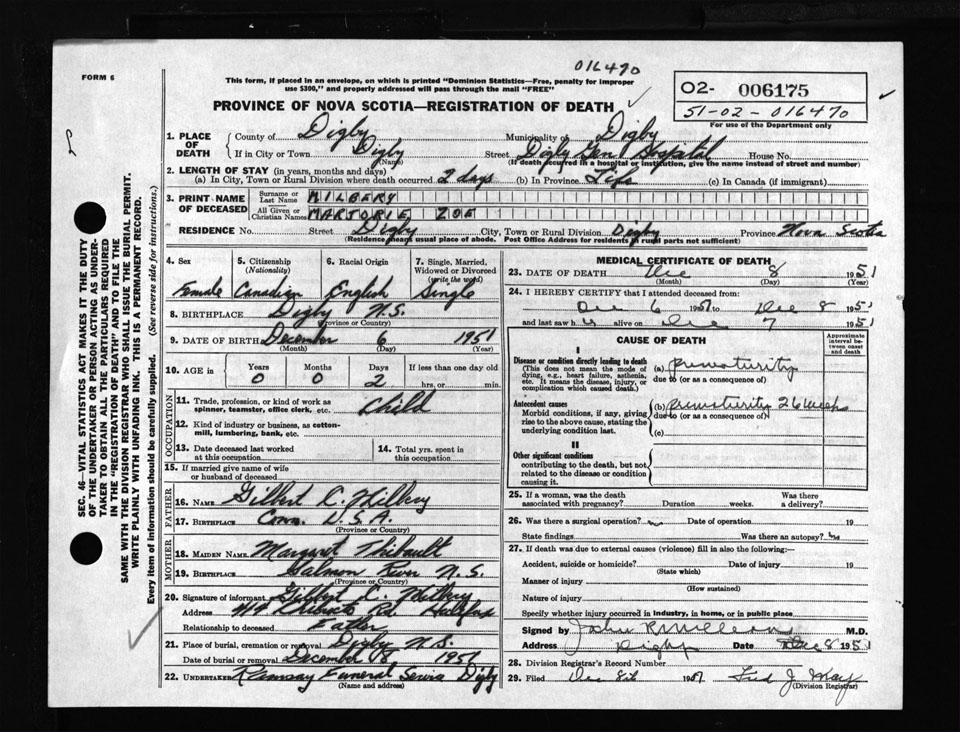 016470
FORM 6
This form, if placed in an envelope, on which is printed "Dominion Statistics—Free, penalty for improper
use $300," and properly addressed will pass through the mail "FREE"
O2- 006175
51-02-016470
For use of the Department only
PROVINCE OF NOVA SCOTIA—REGISTRATION OF DEATH
1. PLACE OF DEATH County of Digby Municipality of Digby
If in City or Town Digby Street Digby Gen Hospital House No.
(Name) (If death occurred in a hospital or institution, give the name instead of street and number)
2. LENGTH OF STAY (in years, months and days)
(a) In City, Town or Rural Division where death occurred 2 days (b) In Province Life (c) In Canada (if immigrant)
3. PRINT NAME OF DECEASED Surname or Last Name MILBERY
All Given or Christian Names MARJORIE ZOE
RESIDENCE No. Street Digby City, Town or Rural Division Digby Province Nova Scotia
(Residence means usual place of abode. Post Office Address for residents in rural parts not sufficient)
4. Sex 5. Citizenship (Nationality) 6. Racial Origin 7. Single, Married, Widowed or Divorced (write the word)
Female Canadian English Single
8. BIRTHPLACE Digby N.S.
(Province or Country)
9. DATE OF BIRTH December 6 1951
(Month) (Day) (Year)
10. AGE in Years Months Days If less than one day old
0 0 2 hrs. or min.
OCCUPATION
11. Trade, profession, or kind of work as spinner, teamster, office clerk, etc. Child
12. Kind of industry or business, as cotton-mill, lumbering, bank, etc.
13. Date deceased last worked at this occupation 14. Total yrs. spent in this occupation
15. If married give name of wife or husband of deceased
FATHER
16. NAME Gilbert C. Milbery
17. BIRTHPLACE Conn. U.S.A.
(Province or Country)
MOTHER
18. MAIDEN NAME Margaret Thibault
19. BIRTHPLACE Salmon River N.S.
(Province or Country)
20. Signature of informant Gilbert C. Milbery
Address 44 Rd. Halifax
Relationship to deceased Father
21. Place of burial, cremation or removal Digby N.S.
Date of burial or removal December 8 1951
22. UNDERTAKER Ramsay Funeral Service Digby
(Name and address)
MEDICAL CERTIFICATE OF DEATH
23. DATE OF DEATH Dec 8 1951
(Month) (Day) (Year)
24. I HEREBY CERTIFY that I attended deceased from
Dec 6 1951 to Dec 8 1951
and last saw h er alive on Dec 7 1951
CAUSE OF DEATH
Approximate interval between onset and death
I
Disease or condition directly leading to death
(This does not mean the mode of dying, e.g., heart failure, asthenia, etc. It means the disease, injury, or complication which caused death.)
(a) prematurity
due to (or as a consequence of)
Antecedent causes
Morbid conditions, if any, giving rise to the above cause, stating the underlying condition last.
(b) prematurity 26 weeks
due to (or as a consequence of)
(c)
II
Other significant conditions
contributing to the death, but not related to the disease or condition causing it.
25. If a woman, was the death associated with pregnancy? Duration weeks. Was there a delivery?
26. Was there a surgical operation? no Date of operation 19
State findings Was there an autopsy? no
27. If death was due to external causes (violence) fill in also the following:—
Accident, suicide or homicide? Date of injury 19
(State which)
Manner of injury
(How sustained)
Nature of injury
Specify whether injury occurred in industry, in home, or in public place
Signed by John R. M.D.
Address Digby Date Dec 8 1951
28. Division Registrar's Record Number
29. Filed Dec 8th 1951 Fred J. May
(Division Registrar)
SEC. 46—VITAL STATISTICS ACT MAKES IT THE DUTY
OF THE UNDERTAKER OR PERSON ACTING AS UNDER-
TAKER TO OBTAIN ALL THE PARTICULARS REQUIRED
IN THE "REGISTRATION OF DEATH" AND TO FILE THE
SAME WITH THE DIVISION REGISTRAR WHO SHALL ISSUE THE BURIAL PERMIT.
WRITE PLAINLY WITH UNFADING INK. THIS IS A PERMANENT RECORD.
Every item of information should be carefully supplied. (See reverse side for instructions.)